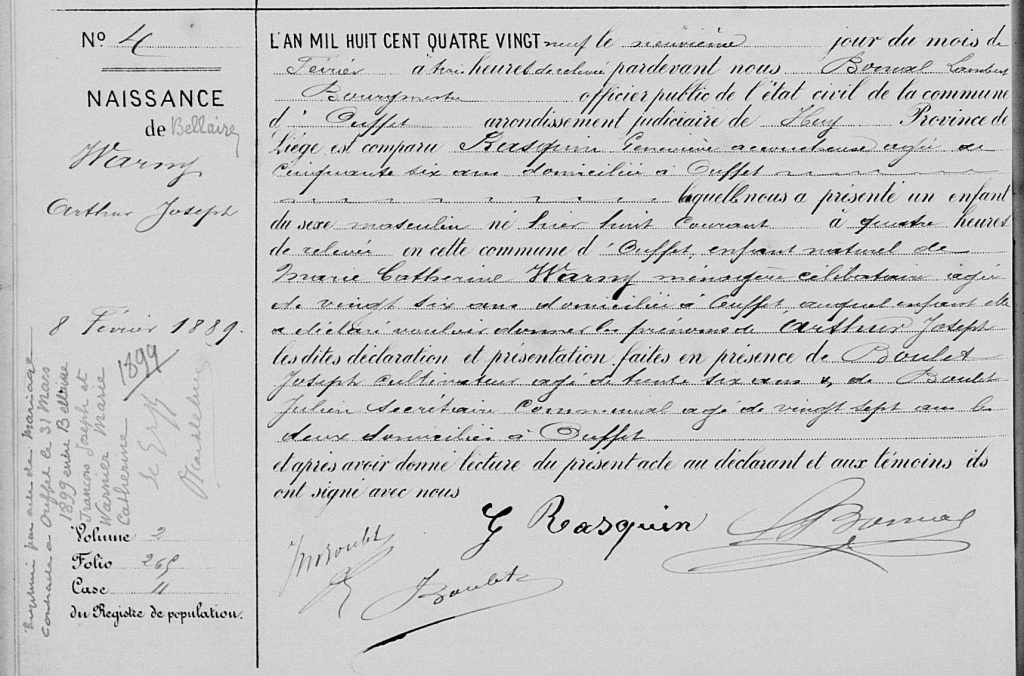 Nº 4
NAISSANCE
de Bellaire
Warny
Arthur Joseph
8 Février 1889.
légitimé par acte de Mariage
contracté à Ouffet le 31 Mars
1899 entre Bellaire
François Joseph et
Warnier Marie
Catherine
1399
Le Greff
Volume 2
Folio 265
Case 11
du Registre de population.
L'AN MIL HUIT CENT QUATRE VINGT neuf le neuvième jour du mois de
Février à trois heures de relevée pardevant nous Bonval Lambert
Bourgmestre officier public de l'état civil de la commune
d' Ouffet arrondissement judiciaire de Huy Province de
Liége est comparu Rasquin Geneviève accoucheuse agée de
cinquante six ans domiciliée à Ouffet
laquelle nous a présenté un enfant
du sexe masculin né hier huit courant à quatre heures
de relevée en cette commune d' Ouffet, enfant naturel de
Marie Catherine Warny ménagère célibataire agée
de vingt six ans domiciliée à Ouffet, auquel enfant elle
a déclaré vouloir donner les prénoms de Arthur Joseph
les dites déclaration et présentation faites en présence de Boulet
Joseph cultivateur agé de trente six ans & de Boulet
Julien Secrétaire Communal agé de vingt sept ans les
deux domiciliés à Ouffet
et après avoir donné lecture du présent acte au déclarant et aux témoins ils
ont signé avec nous
G Rasquin
L Bonval
J Boulet
J Boulet